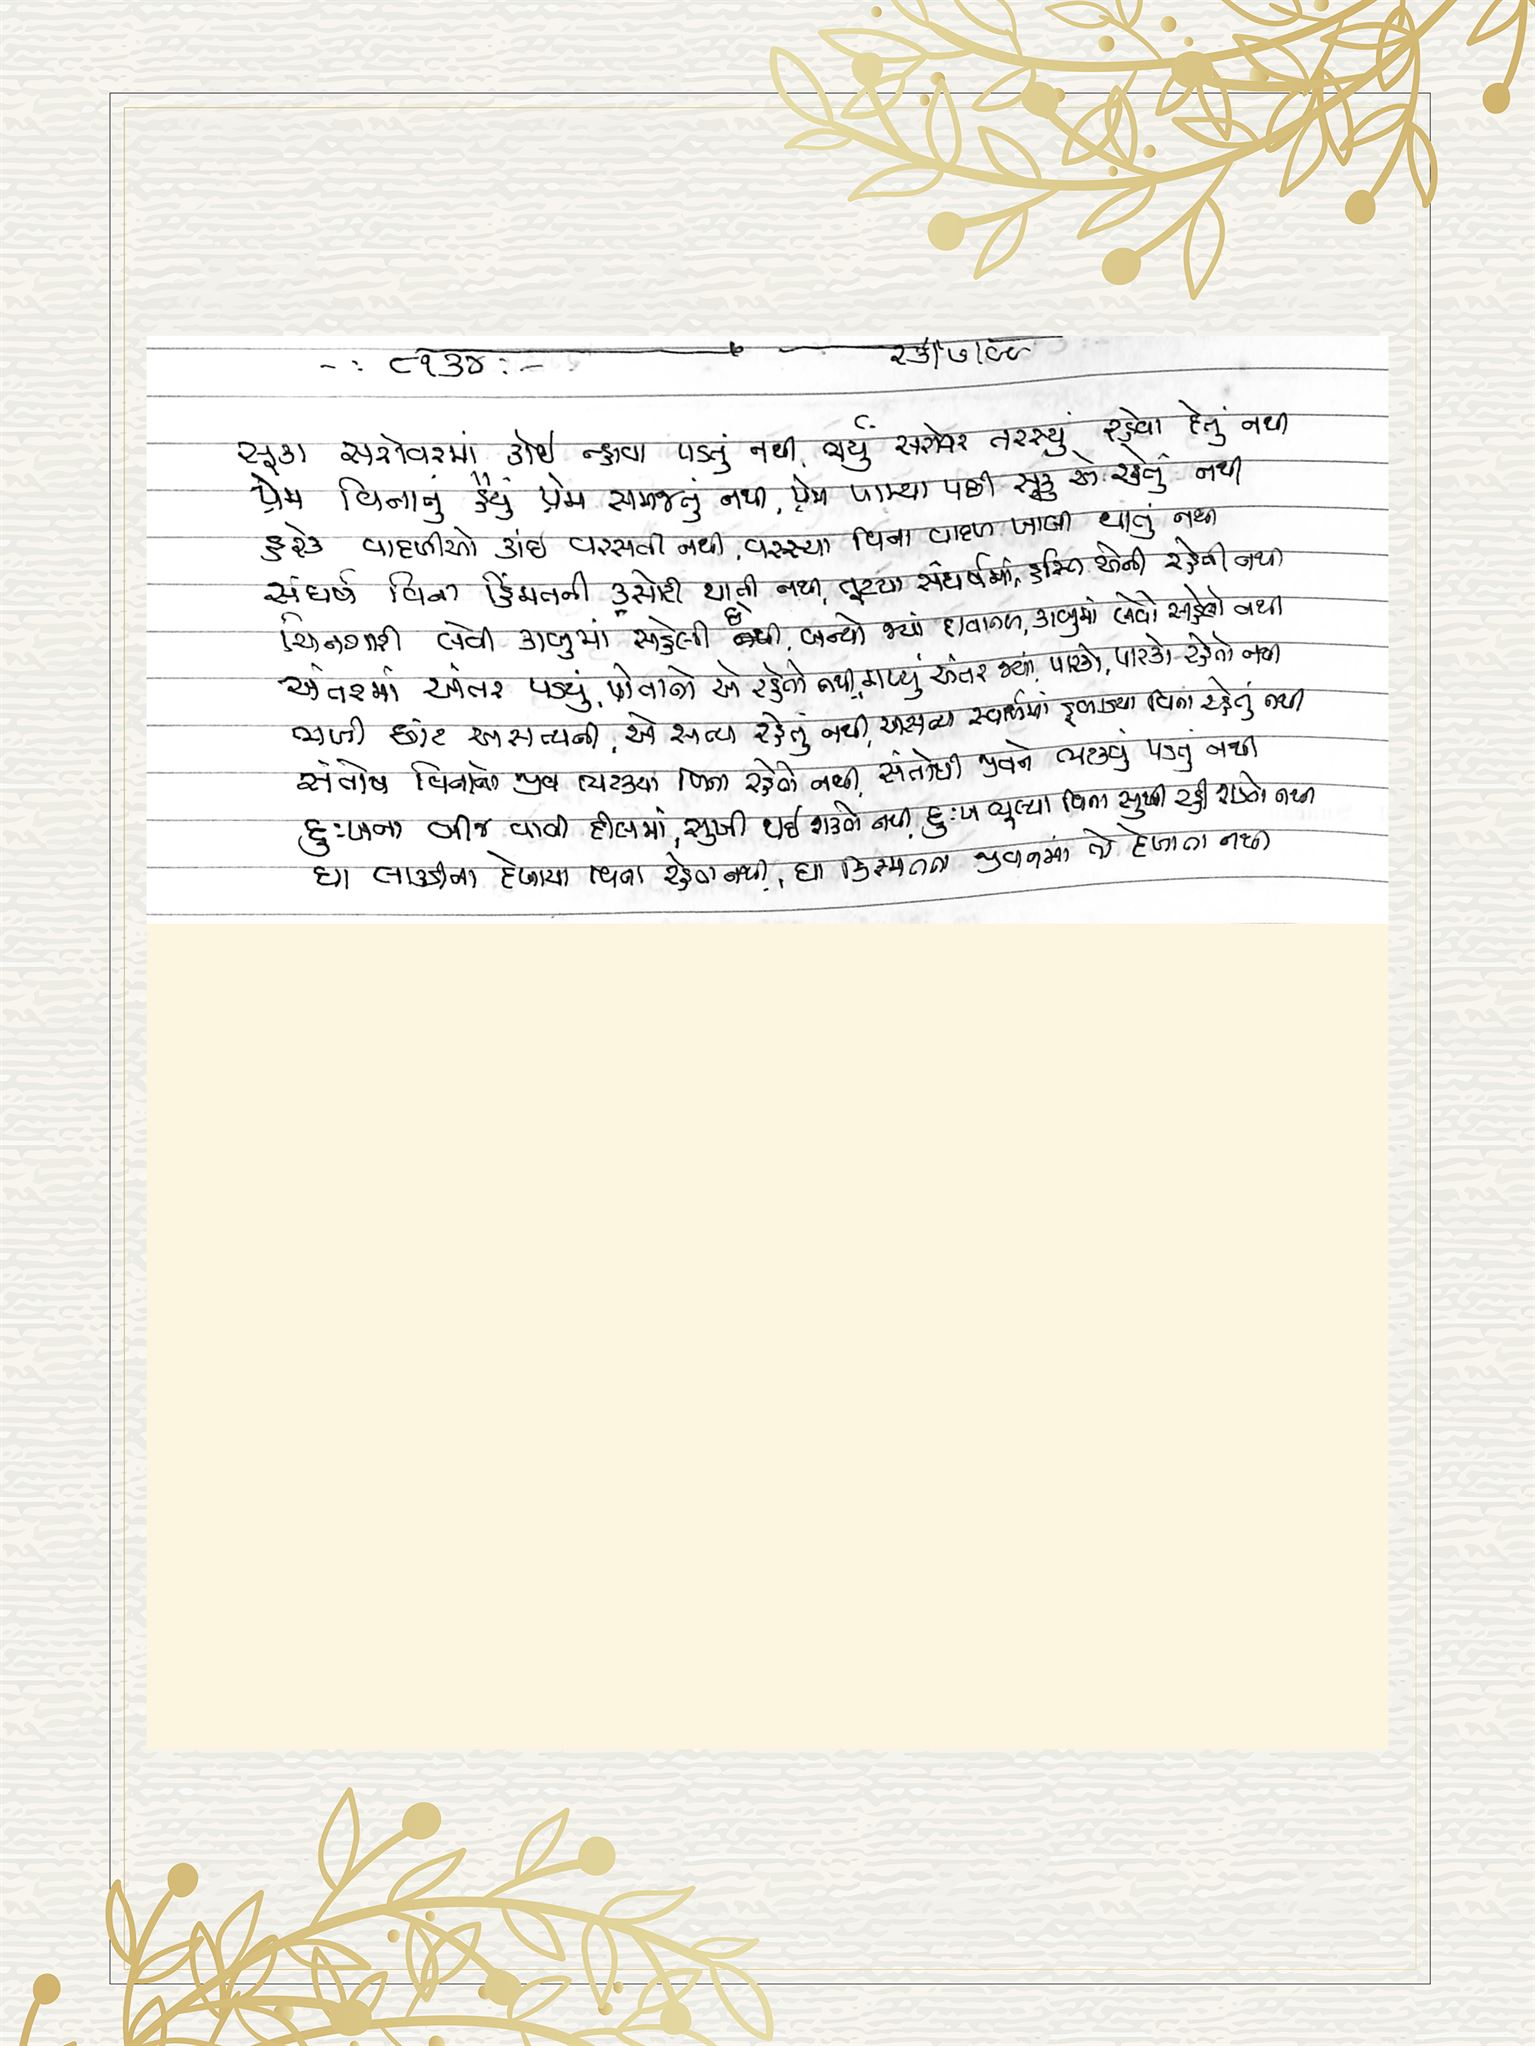 -: ૮૧૩૪ :-
સૂકા સરોવરમાં કોઈ ન્હાવા પડતું નથી, ભર્યું સરોવર તરસ્યું રહેવા દેતું નથી
પ્રેમ વિનાનું હૈયું પ્રેમ સમજતું નથી, પ્રેમ પામ્યા પછી સૂકું એ રહેતું નથી
હરેક વાદળીઓ કાંઈ વરસતી નથી, વરસ્યા વિના વાદળ ખાલી થાતું નથી
સંઘર્ષ વિના હિંમતની કસોટી થાતી નથી, તૂટયા સંઘર્ષમાં, હસ્તિ એની રહેતી નથી
ચિનગારી લેવી કાબુમાં સહેલી છે, બન્યો જ્યાં દાવાનળ, કાબુમાં લેવો સહેલો નથી
અંતરમાં અંતર પડયું, પોતાનો એ રહેતો નથી, ગમ્યું અંતર જ્યાં, પારકો, પારકો રહેતો નથી
ભળી છાંટ અસત્યની, એ સત્ય રહેતું નથી, અસત્ય સ્વાર્થમાં વિના રહેતું નથી
સંતોષ વિનાનો જીવ ભટક્યા વિના રહેતો નથી, સંતોષી જીવને ભટકવું પડતું નથી
દુઃખના બીજ વાવી દીલમાં, સુખી થઈ શક્તો નથી, દુઃખ ભૂલ્યા વિના સુખી રહી શક્તો નથી
ઘા લાકડીના દેખાયા વિના રહેતા નથી, ઘા કિસ્મતના જીવનમાં તો દેખાતા નથી